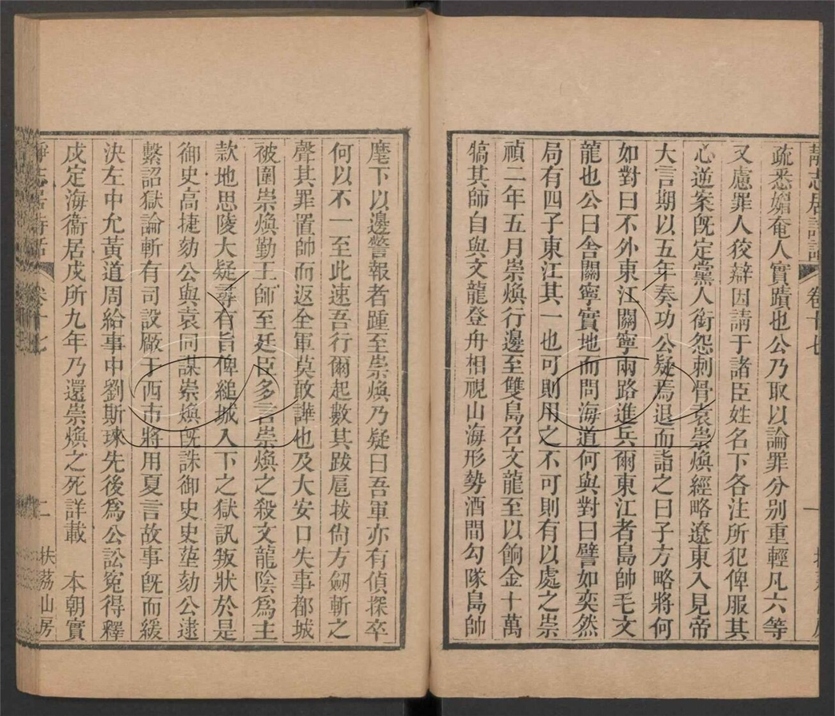 靜志居詩話 卷十七
疏悉媚奄人實蹟也公乃取以論罪分別重輕凡六等
又慮罪人狡辯因請于諸臣姓名下各注所犯俾服其
心逆案旣定黨人銜怨刺骨袁崇煥經略遼東入見帝
大言期以五年奏功公疑焉退而詣之曰子方略將何
如對曰不外東江關寧兩路進兵爾東江者島帥毛文
龍也公曰舍關寧實地而問海道何與對曰譬如奕然
局有四子東江其一也可則用之不可則有以處之崇
禎二年五月崇煥行邊至雙島召文龍至以餉金十萬
犒其師自與文龍登舟相視山海形勢酒間勾隊島帥
麾下以邊警報者踵至崇煥乃疑曰吾軍亦有偵探卒
何以不一至此速吾行爾起數其跋扈拔尙方劒斬之
聲其罪置帥而返全軍莫敢譁也及大安口失事都城
被圍崇煥勤王師至廷臣多言崇煥之殺文龍陰爲主
款地思陵大疑尋有旨俾縋城入下之獄訊叛狀於是
御史高捷劾公與袁同謀崇煥旣誅御史史𡎊劾公逮
繫詔獄論斬有司設厰于西市將用夏言故事旣而緩
決左中允黃道周給事中劉斯琜先後爲公訟寃得釋
戍定海衞居戍所九年乃還崇煥之死詳載 本朝實
靜志居詩話 卷十七 二 扶荔山房